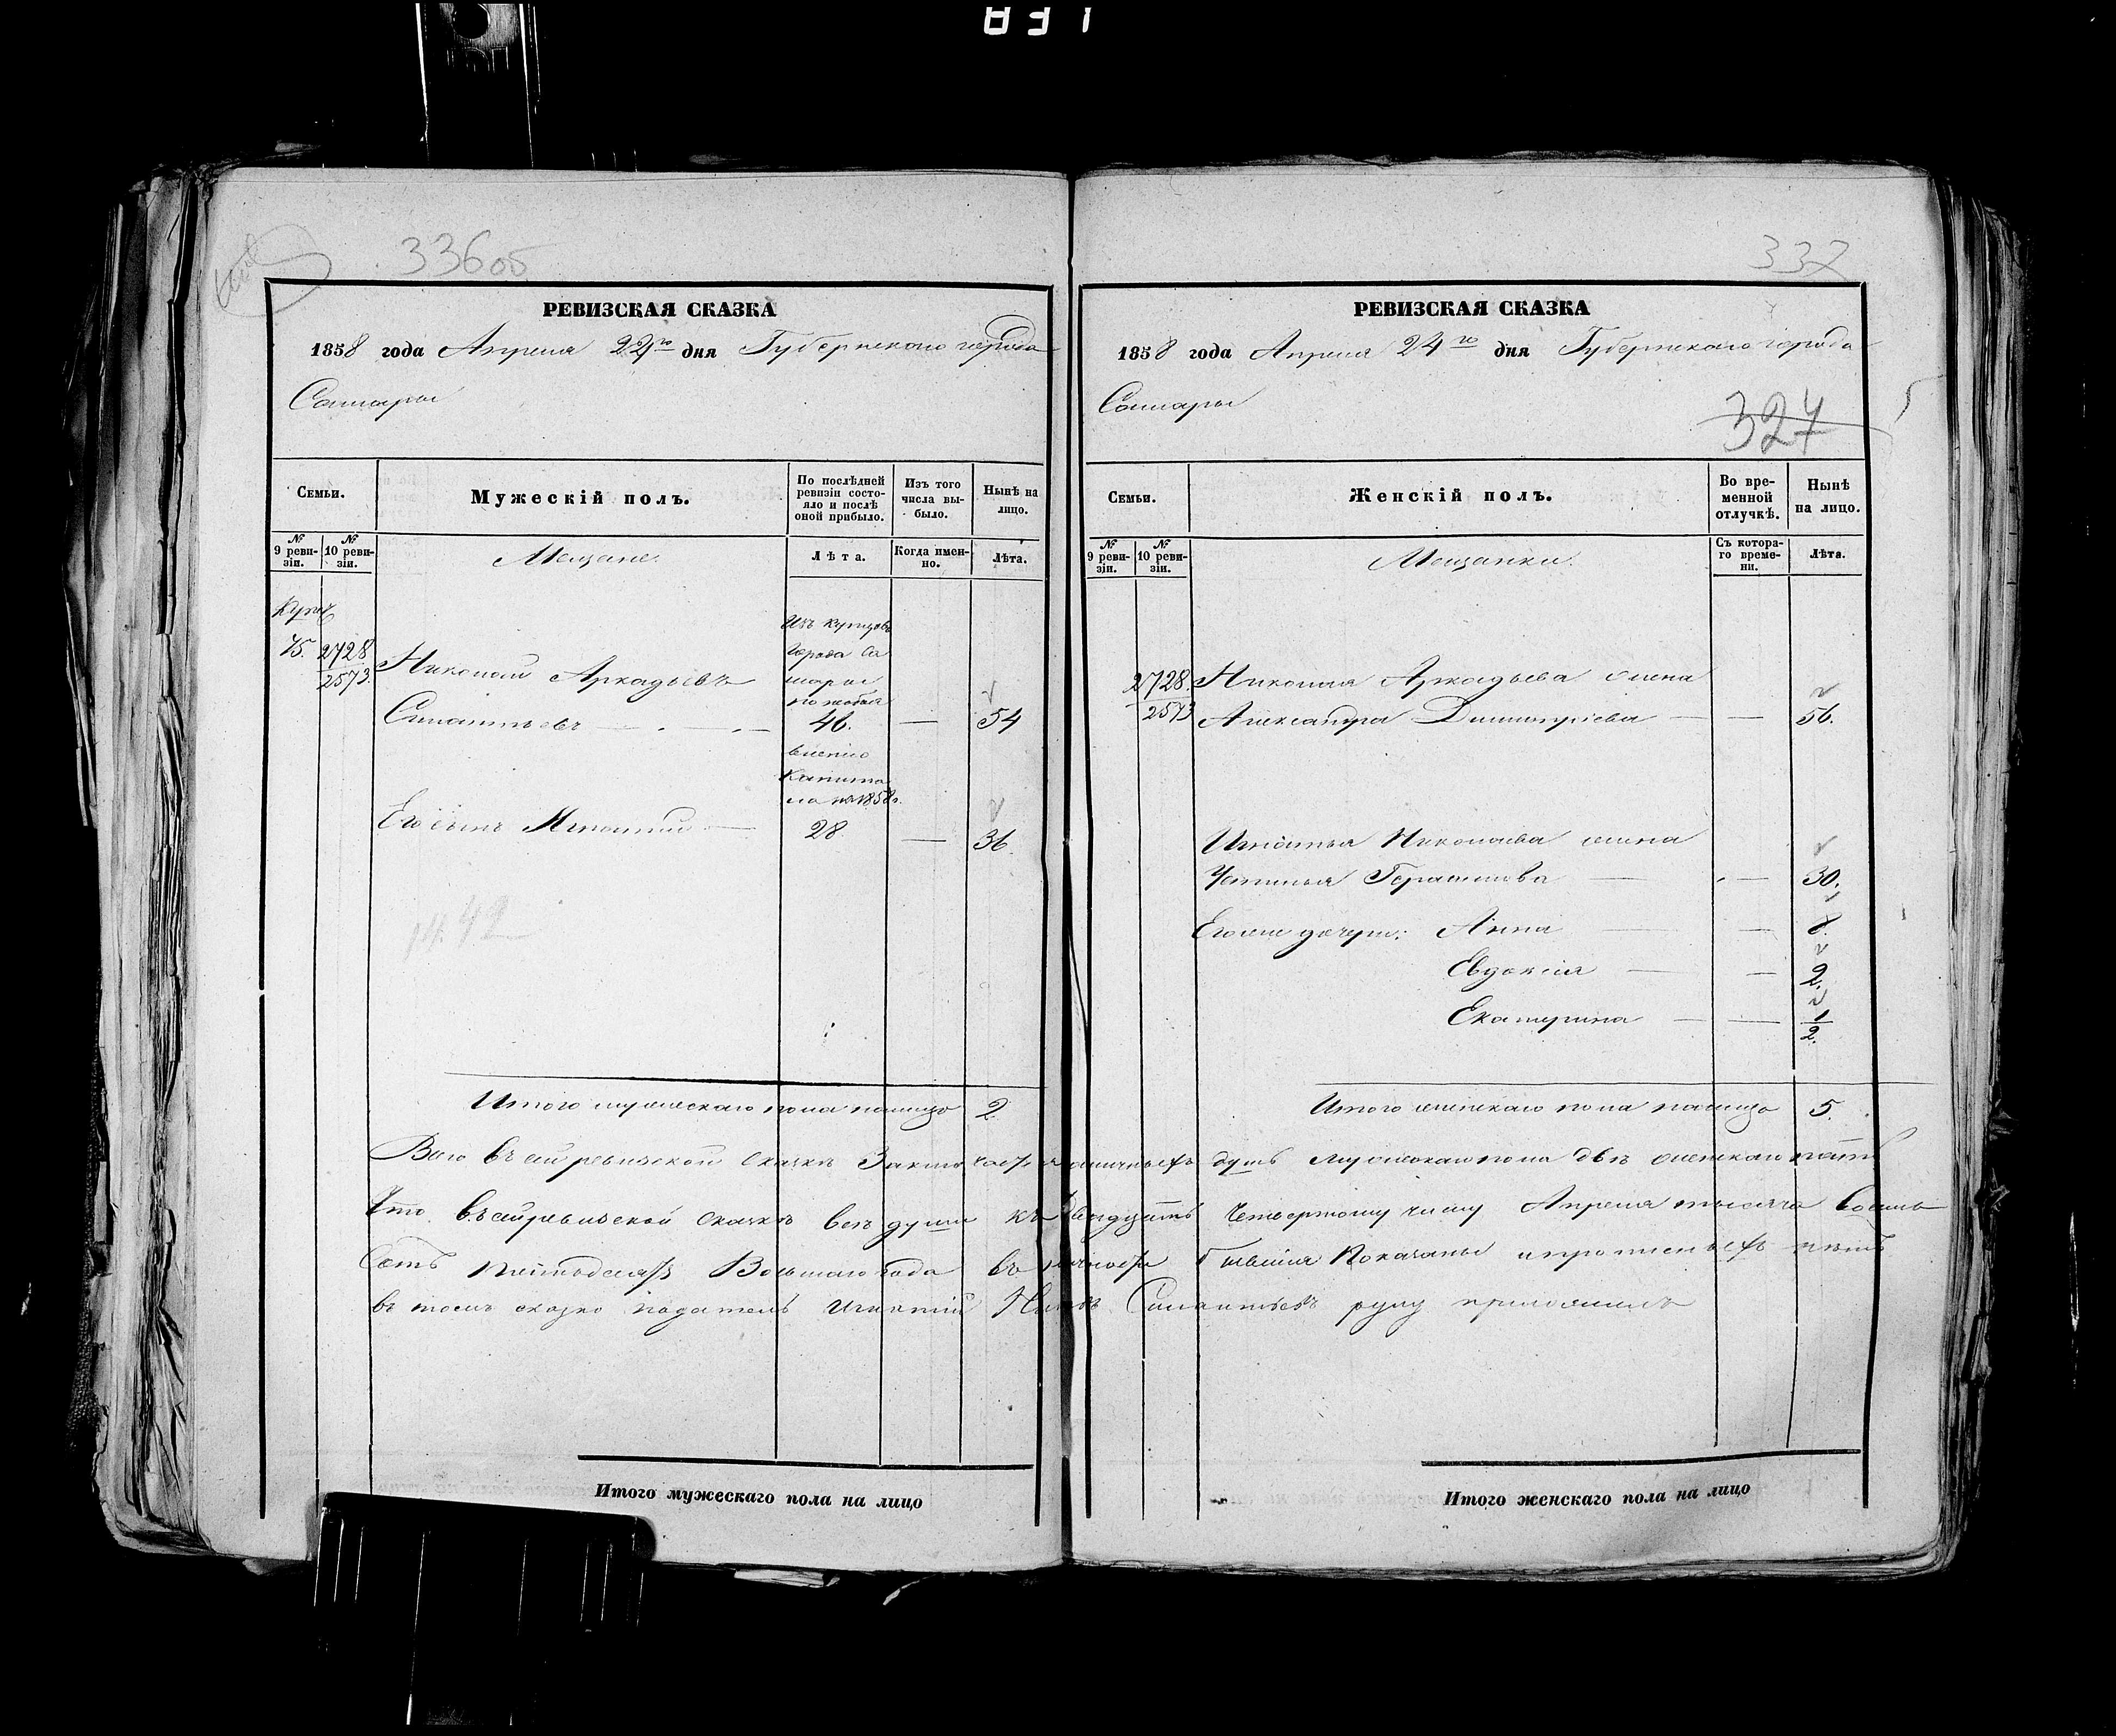 831
336об
РЕВИЗСКАЯ СКАЗКА
1858 года Апреля 24го дня Губернскаго города
Самары
Семьи.
Мужескій полъ.
По послѣдней ревизіи состояло и послѣ оной прибыло.
Изъ того числа выбыло.
Нынѣ на лицо.
№ 9 ревизіи.
№ 10 ревизіи.
Мещане.
Лѣта.
Когда именно.
Лѣта.
Купеч
75. 2728 2573.
Изъ купцовъ
города Са
мары
по необъя
46.
вленію
Капита
ла на 1858 г.
Николай Аркадьевъ
Силантьевъ — 54
Его сынъ Игнатий — 28 — 36.
14.42
Итого мужескаго пола налицо 2.
Итого мужескаго пола на лицо
337
РЕВИЗСКАЯ СКАЗКА
1858 года Апреля 24го дня Губернскаго города
Самары
327
Семьи.
Женскій полъ.
Во временной отлучкѣ.
Нынѣ на лицо.
№ 9 ревизіи.
№ 10 ревизіи.
Мещанки.
Съ котораго времени.
Лѣта.
2728. Николая Аркадьева жена
2573 Александра Димитріева — — 56.
Игнатья Николаева жена
Устинья Герасимова — — 30.
Его же дочери: Анна — — 8.
Евдокія — — 2.
Екатерина — — 1/2.
Итого женскаго пола налицо 5.
Всего въ сей ревизской сказкѣ душъ мужескаго пола двѣ женскаго пять
Что въ сей ревизской сказкѣ всѣ души къ двадцать четвертому числу Апреля тысяча восемь
сотъ пятьдесятъ Восьмаго года въ бывшія Показаны и прописныхъ нѣтъ
въ томъ сказко податель Игнатій Силантьевъ руку приложилъ
Итого женскаго пола на лицо